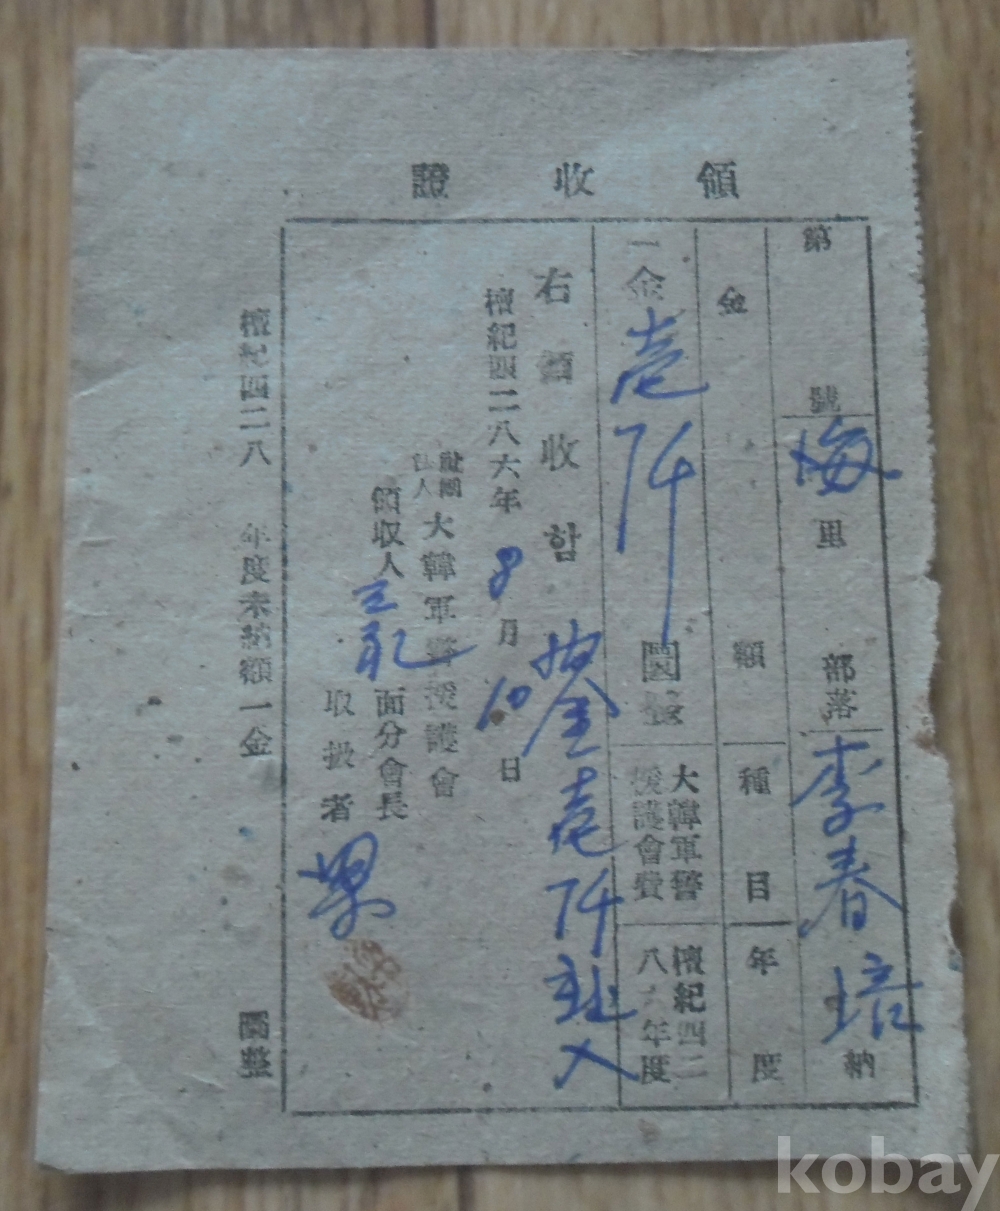 領收證
第 號 海里 部落 李春培 納
金額 種目 年度
一金壱仟圜整 大韓軍警援護會費 檀紀四二八六年度
右領收함
金壱仟
檀紀四二八六年 8月10日
社團法人 大韓軍警援護會
面分會長
領収人
取扱者
檀紀四二八 年度未納額一金 圜整
kobay